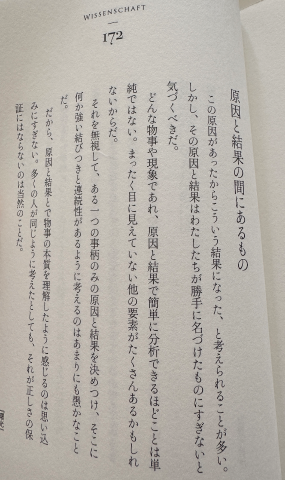 WISSENSCHAFT
172
原因と結果の間にあるもの
この原因があったからこういう結果になった、と考えられることが多い。
しかし、その原因と結果はわたしたちが勝手に名づけたものにすぎないと
気づくべきだ。
どんな物事や現象であれ、原因と結果で簡単に分析できるほどことは単
純ではない。まったく目に見えていない他の要素がたくさんあるかもしれ
ないからだ。
それを無視して、ある一つの事柄のみの原因と結果を決めつけ、そこに
何か強い結びつきと連続性があるように考えるのはあまりにも愚かなこと
だ。
だから、原因と結果とで物事の本質を理解したように感じるのは思い込
みにすぎない。多くの人が同じように考えたとしても、それが正しさの保
証にはならないのは当然のことだ。